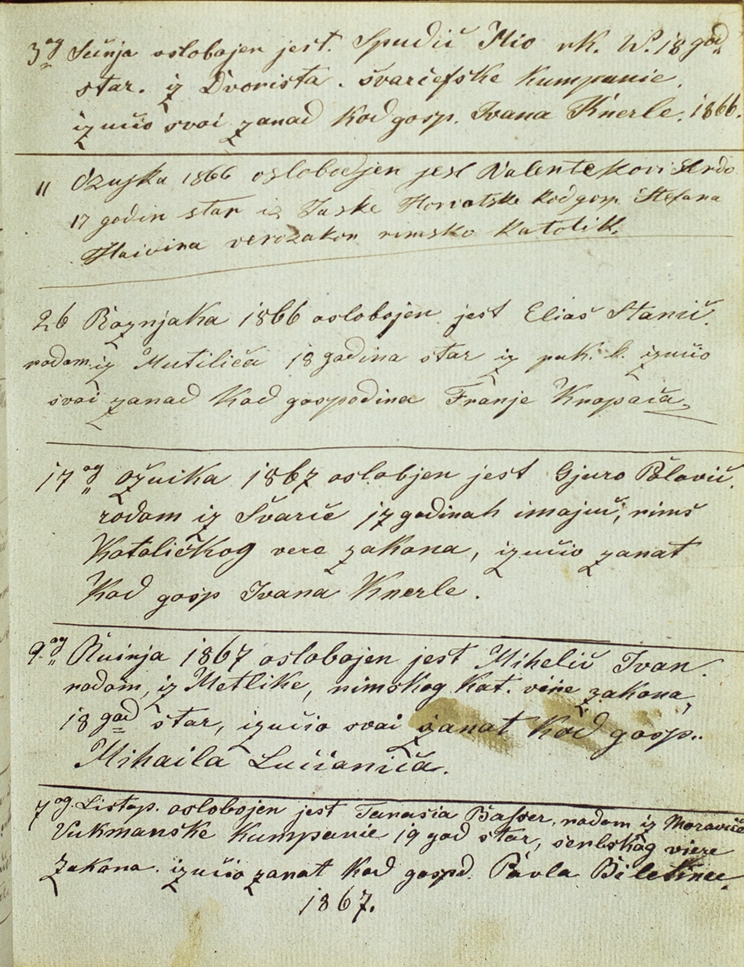 3ag Sušnja oslobojen jest. Spudič Mio rk. W. 18 god.
star. iz Dvorišta. švarčefske Kumpanie.
izučio svoi zanad Kod gosp. Ivana Knerle. 1866.
11 Ožujka 1866 oslobodjen jest Valentekovi Andr
17 godin star iz Jaske Horvatske Kod gosp. Stefana
verozakon rimsko Katolik.
26 Roznjaka 1866 oslobojen jest Eliaš Stanič.
rodom iz Mutiliča 18 godina star iz puk. k. izučio
svoi zanad Kod gospodina Franje Kropača
17ag ožuika 1867 oslobjen jest Gjuro Polovič.
rodom iz Švarče 17 godinah imajuč, rims
Katoličkog vere zakona, izučio zanat
Kod gosp Ivana Knerle.
9.ag Ruinja 1867 oslobojen jest Mihelič Ivan.
rodom, iz Metlike, rimskog kat. vire zakona,
18 god star, izučio svoi zanat Kod gosp.
Mihaila Lucianiča.
7ag. Listop. oslobojen jest Tanasia rodom iz Moraviče
Vukmanske Kumpanie 19 god star, serbskog viere
Zakona. izučio zanat Kod gospd. Pavla
1867.